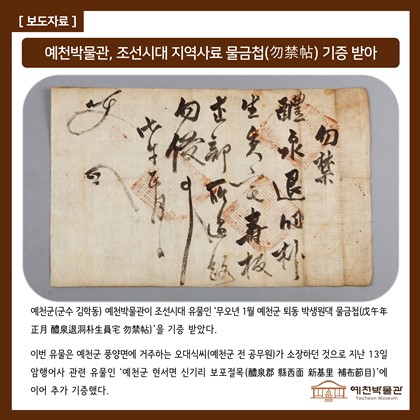 [ 보도자료 ]
예천박물관, 조선시대 지역사료 물금첩(勿禁帖) 기증 받아
勿禁
醴泉退洞朴
生員宅壽板
勿侵事
戊午正月 日
예천군(군수 김학동) 예천박물관이 조선시대 유물인 '무오년 1월 예천군 퇴동 박생원댁 물금첩(戊午年
正月 醴泉退洞朴生員宅 勿禁帖)'을 기증 받았다.
이번 유물은 예천군 풍양면에 거주하는 오대식씨(예천군 전 공무원)가 소장하던 것으로 지난 13일
암행어사 관련 유물인 '예천군 현서면 신기리 보포절목(醴泉郡 縣西面 新基里 補布節目)'에
이어 추가 기증했다.
예천박물관
Yecheon Museum